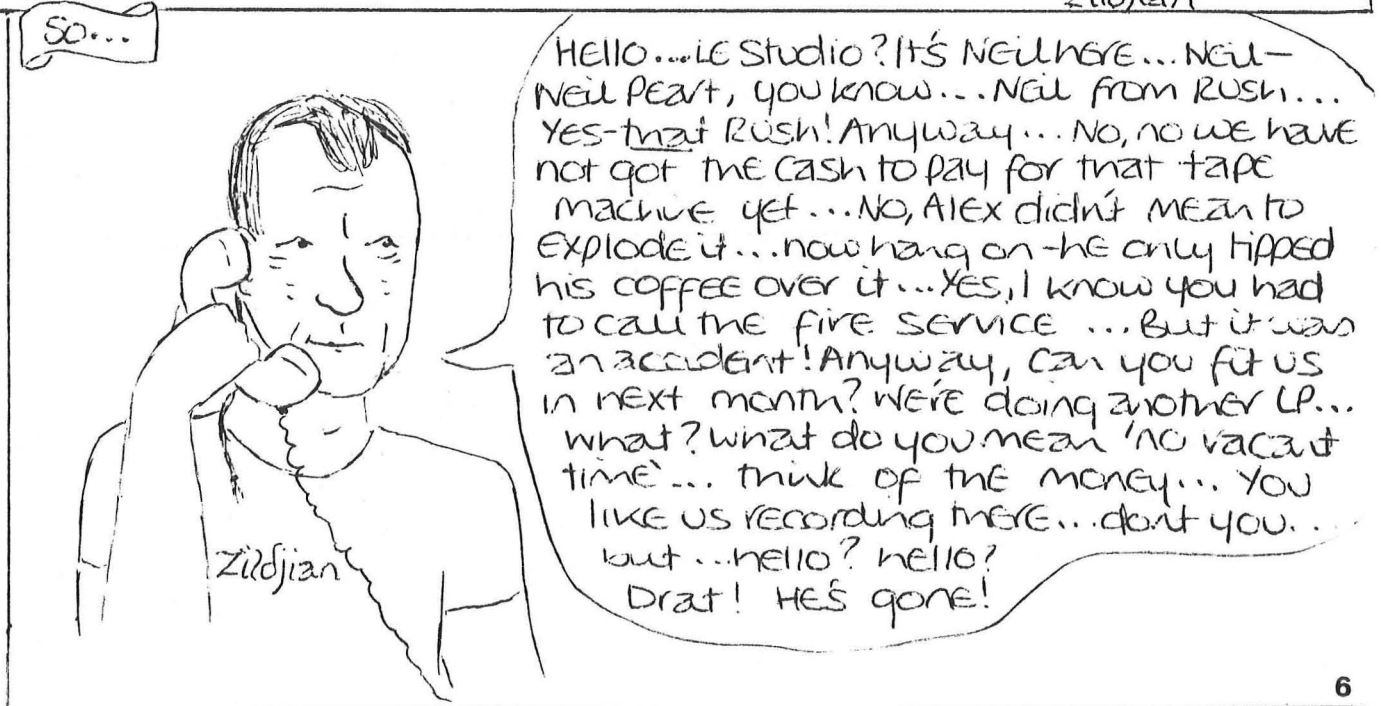 Zildjian
So...
HELLO...LE Studio? It's NEil here... NEil-
NEil PEart, you know... NEil from RUSH...
YES-that RUSH! Anyway... No, no we have
not got the cash to pay for that tape
machine yet... NO, Alex didn't mean to
explode it... now hang on-he only tipped
his coffee over it... Yes, I know you had
to call the fire service ... But it was
an accident! Anyway, can you fit us
in next month? We're doing another LP...
what? what do you mean 'no vacant
time'... think of the money... You
like us recording there... don't you...
but...hello? hello?
Drat! He's gone!
Zildjian
6